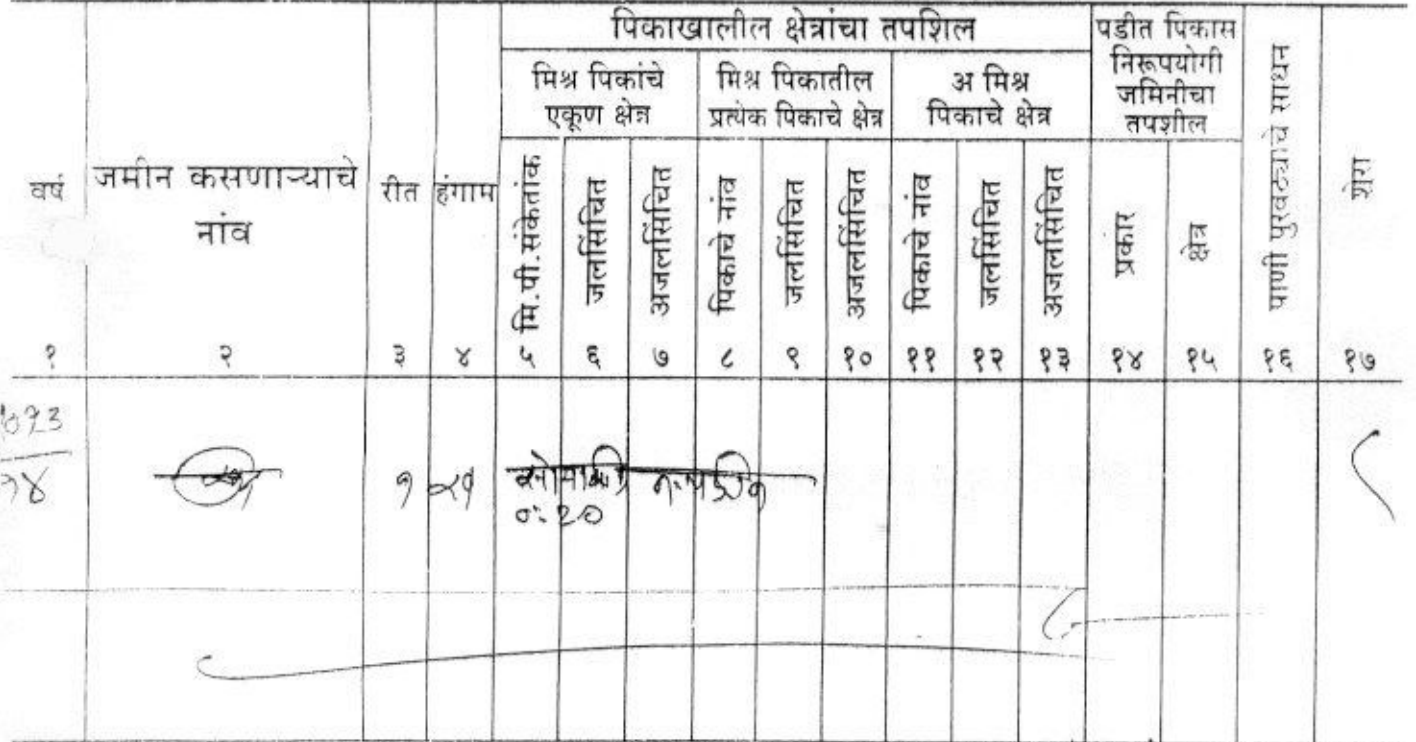 पिकाखालील क्षेत्रांचा तपशिल
पडीत पिकास
निरूपयोगी
जमिनीचा
तपशील
मिश्र पिकांचे
एकूण क्षेत्र
मिश्र पिकातील
प्रत्येक पिकाचे क्षेत्र
अ मिश्र
पिकाचे क्षेत्र
वर्ष
जमीन कसणाऱ्याचे
नांव
रीत
हंगाम
मि.पी.संकेतांक
जलसिंचित
अजलसिंचित
पिकाचे नांव
जलसिंचित
अजलसिंचित
पिकाचे नांव
जलसिंचित
अजलसिंचित
प्रकार
क्षेत्र
पाणी पुरवठ्याचे साधन
शेरा
१ २ ३ ४ ५ ६ ७ ८ ९ १० ११ १२ १३ १४ १५ १६ १७
१